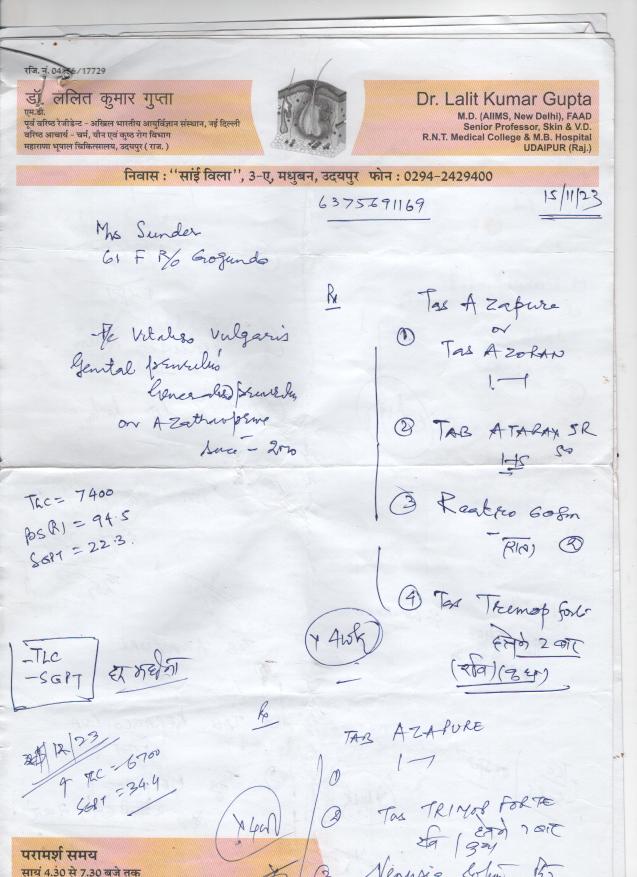 रजि. नं. 04156/17729
डॉ. ललित कुमार गुप्ता
एम.डी.
पूर्व वरिष्ठ रेजीडेन्ट - अखिल भारतीय आयुर्विज्ञान संस्थान, नई दिल्ली
वरिष्ठ आचार्य - चर्म, यौन एवं कुष्ठ रोग विभाग
महाराणा भूपाल चिकित्सालय, उदयपुर ( राज. )
Dr. Lalit Kumar Gupta
M.D. (AIIMS, New Delhi), FAAD
Senior Professor, Skin & V.D.
R.N.T. Medical College & M.B. Hospital
UDAIPUR (Raj.)
निवास : "सांई विला", 3-ए, मधुबन, उदयपुर फोन : 0294-2429400
6375691169
15/11/23
Mrs Sunder
61 F R/o Gogunda
Rx
Tab Azapure
or
① Tab AZORAN
1
② TAB ATARAX SR
1 HS
vulgaris
Genital
on Azathioprine
since
TLC = 7400
PBS (R) = 94.5
SGPT = 22.3
③ 60gm
④ Tab forte
हफ्ते में 2 बार
(रवि) (बुध)
x 4 wk
- TLC
- SGPT
हर महीना
/12/23
TLC = 6700
SGPT = 34.4
Rx
TAB AZAPURE
①
1
② Tab TRIMOP FORTE
हफ्ते में 2 बार
रवि / बुध
x 4
परामर्श समय
सायं 4.30 से 7.30 बजे तक